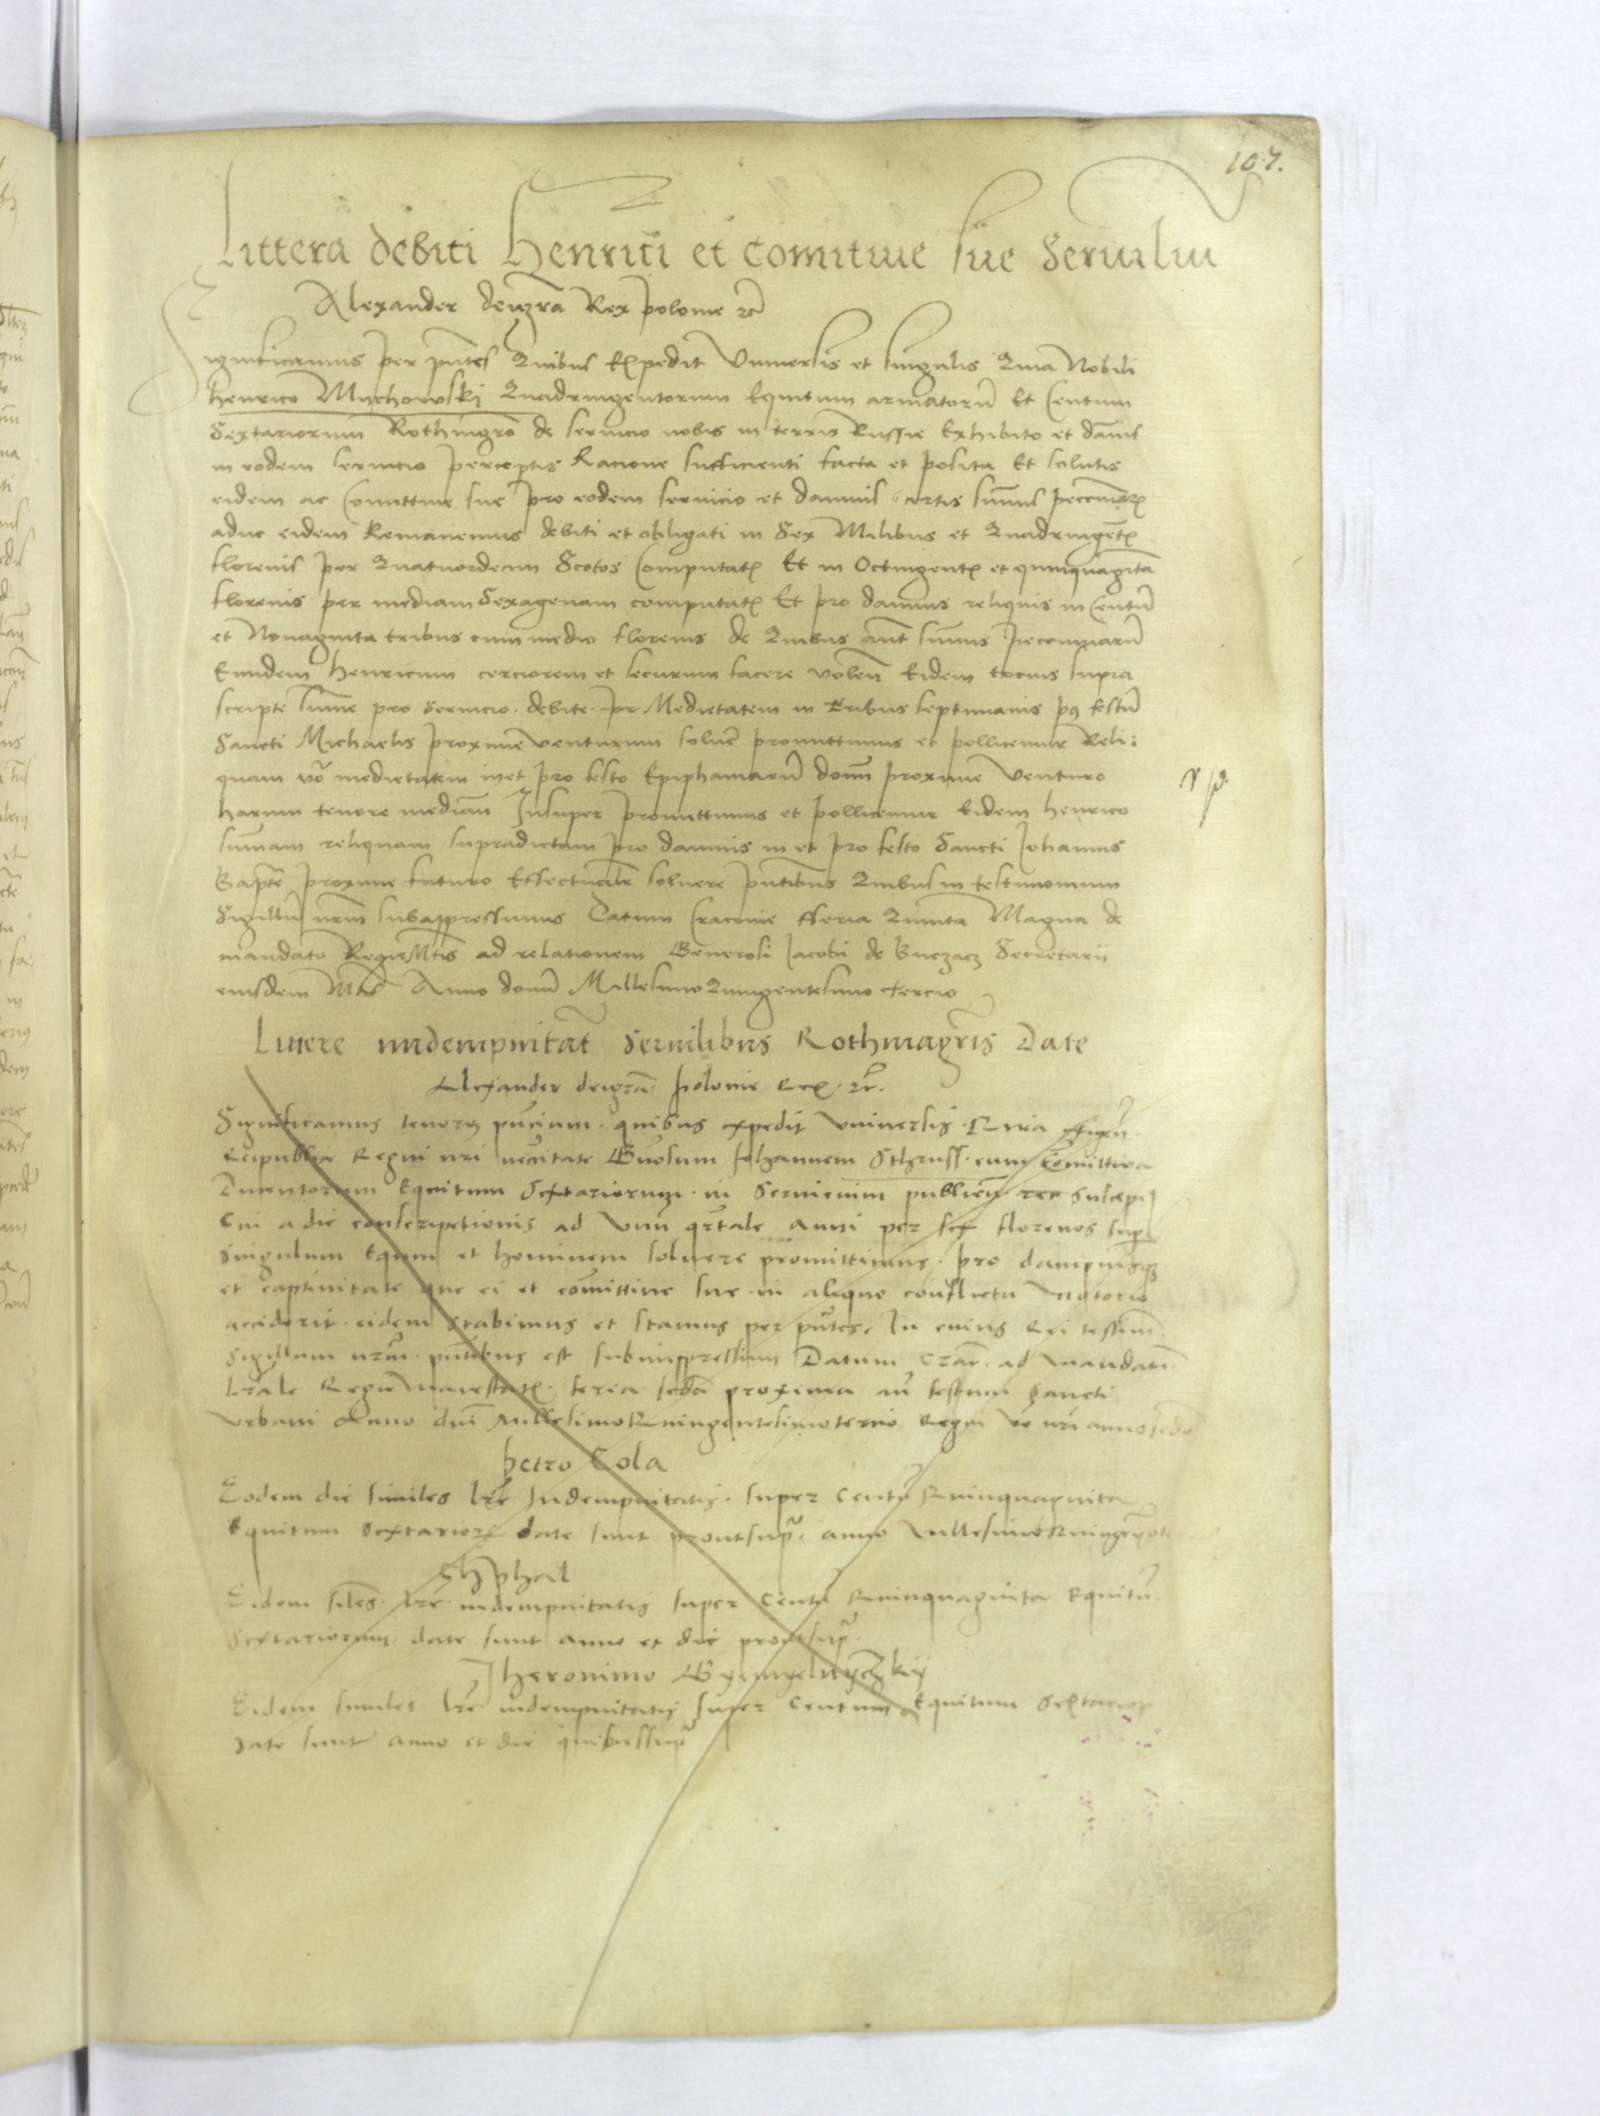 107.
Littera debiti Henrici et Comitiue sue Seruiliu
Alexander deigra Rex polonie zc
Significamus per pntes Quibus Expedit Vniuersis et singulis Quia Nobili
henrico Mychowski Quadringentorum Equitum armatoru Et Centum
Sextariorum Rothmgro de seruicio nobis in terris Russie Exhibito et damnis
in eodem seruicio perceptis Racione sufficienti facta et posita Et solutis
eidem ac Comittiue sue pro eodem seruicio et damnis certis summis peccuniarum
aduc eidem Remanemus debiti et obligati in Sex Milibus et Quadringent
florenis per Quatuordecim Scotos Computat Et in Octingent et quinquaginta
florenis per mediam Sexagenam computat Et pro damnis reliquis in Centu
et Nonaginta tribus cum medio florenis de Quibus ant summis peccuniaru
Eundem henricum cerciorem et securum facere volen Eidem tocius supra
scripte summe pro seruicio debite pr Medietatem in tribus septimanis pq festu
Sancti Michaelis proxime venturum soluere promittimus et pollicemur Reli:
quam vo medietatem in et pro festo Epiphaniaru domi proxime venturo
harum tenore median Insuper promittimus et pollicemur Eidem henrico
summam reliquam supradictam pro damnis in et pro festo Sancti Johannis
Bapte proxime futuro Effectualr soluere pntibus Quibus in testimonium
Sigillu nrm subappressimus Datum Cracouie fferia Quinta Magna de
mandato Regie Mtis ad relationem Generosi Jacobi de Buczacz Secretarii
eiusdem Mtis Anno domi Millesimo Quingentesimo tercio
Littere indempnitat Seruilibus Rothmagris Date
Alexander deigra polonie Rex zc.
Significamus tenore pncium quibus expedit vniuersis Quia
Reipublice Regni nri necitate Gnosum Johannem Sthruss cum Comittiua
Ducentorum Equitum Sextariorum in Seruicium publicu suscepi
Cui a die conscripctionis ad vnu qrtale anni per sex florenos sup
Singulum Equm et hominem soluere promittimus pro dampnis
et captiuitate que ei et comittiue sue in aliquo conflictu notorio
acciderit eidem stabimus et stamus per pntes. In cuius Rei testim
Sigillum nrm pntibus est subimppressum Datum Crac ad mandatu
lrale Regie Maiestat feria secda proxima an festum Sancti
Vrbani Anno dni Millesimo Quingentesimo tercio Regni vo nri anno secdo
Petro Cola
Eodem die similes lre Indempnitatis super Centu Quinquaginta
Equitum Sextarior date sunt proutsup anno Millesimo
Eidem siles lre indempnitatis super Centu Quinquaginta Equitu
Sextariorum date sunt anno et die proutsup
Jheronimo
Eidem similes lre indempnitatis super Centum Equitum Sextarior
date sunt anno et die quibussup